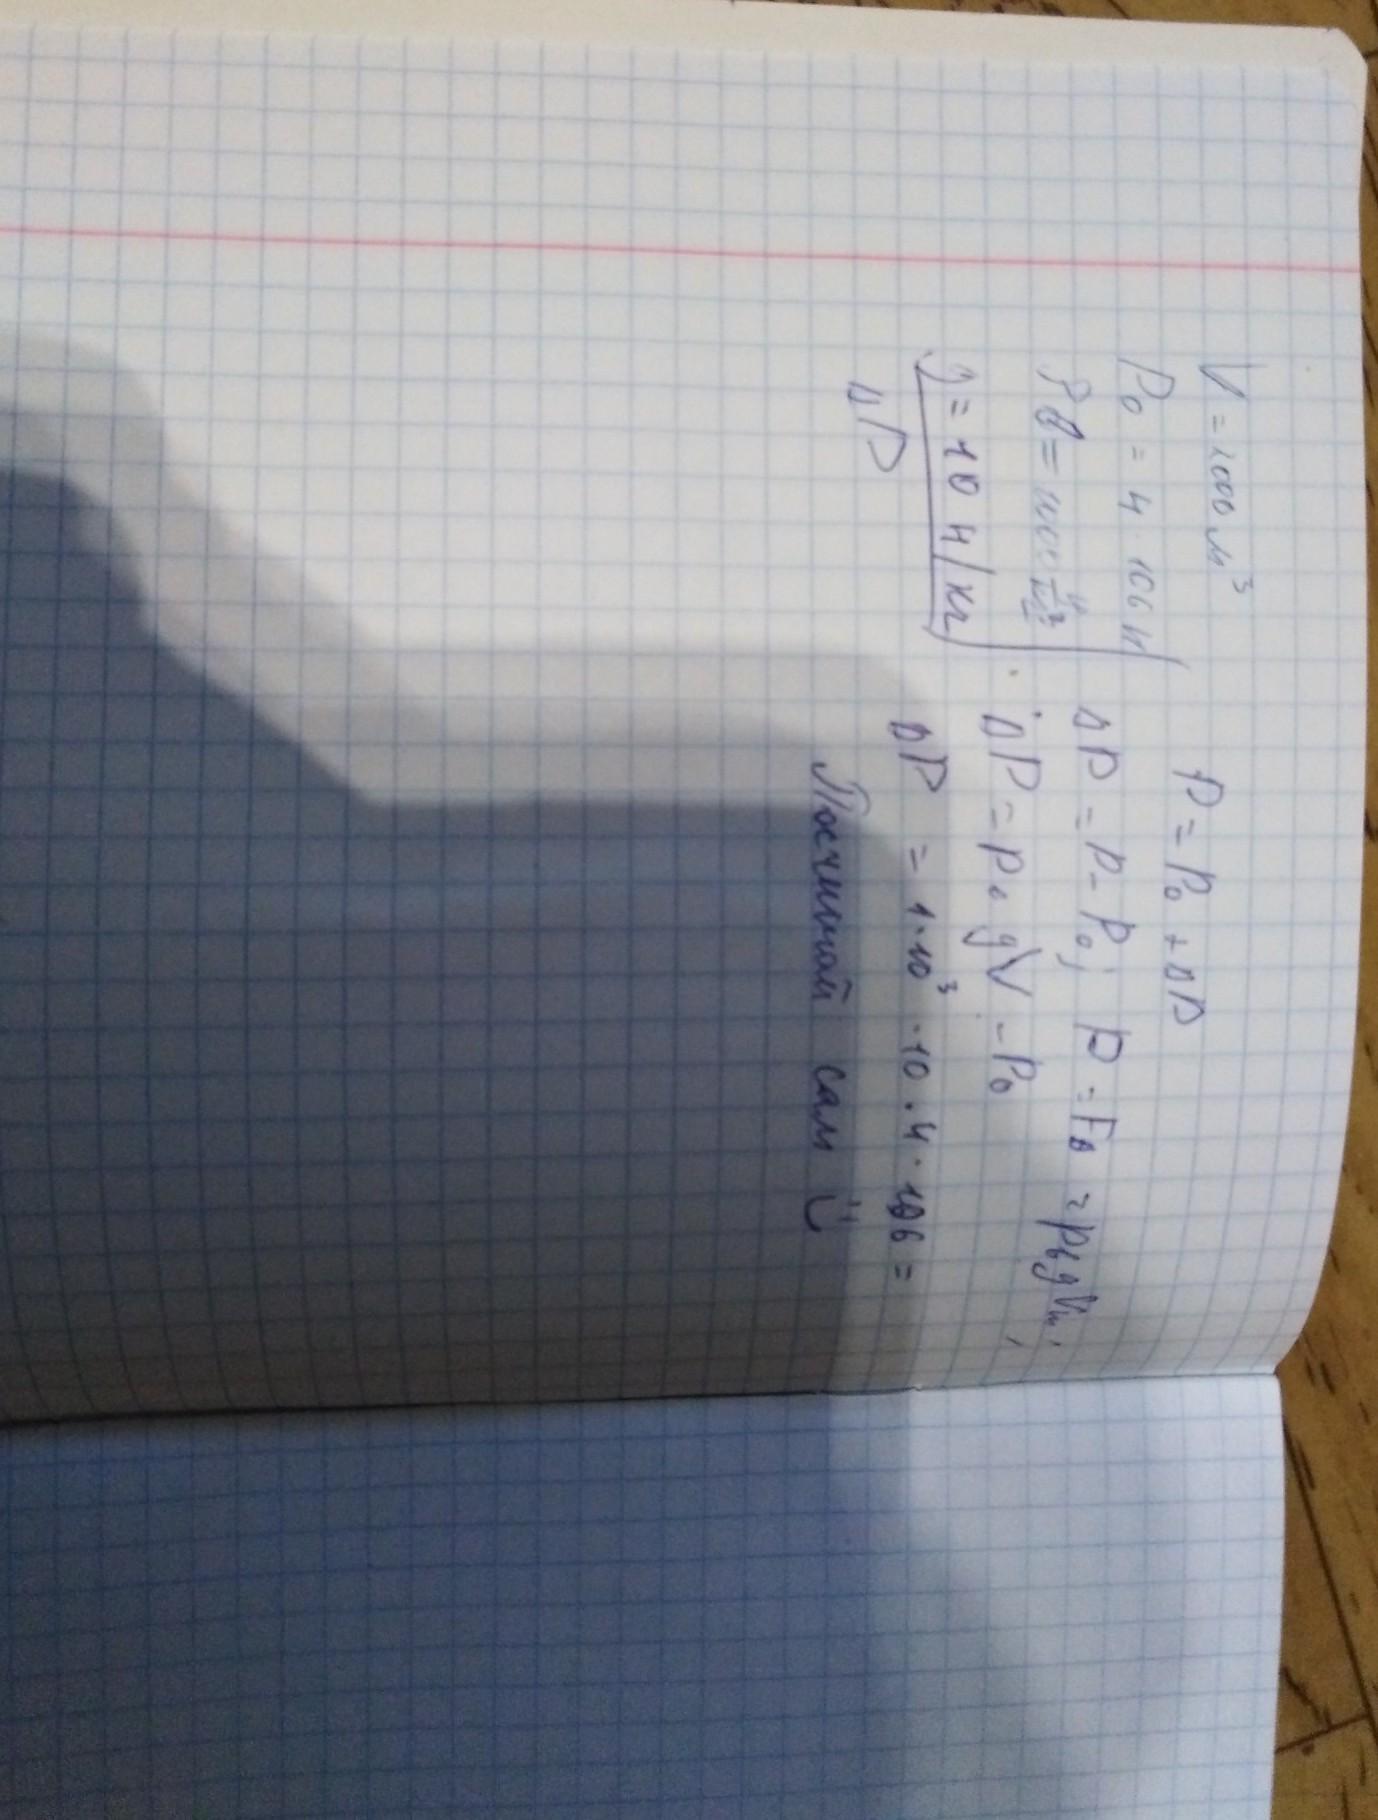 V = 2000 м³
P₀ = 4 · 106 Н
ρв = 1000 кг/м³
g = 10 Н/кг
ΔP
P = P₀ + ΔP
ΔP = P - P₀; P = Fв = ρвgVт;
ΔP = ρв gV - P₀
ΔP = 1·10³ ·10 . 4 · 106 =
Посчитай сам Ü